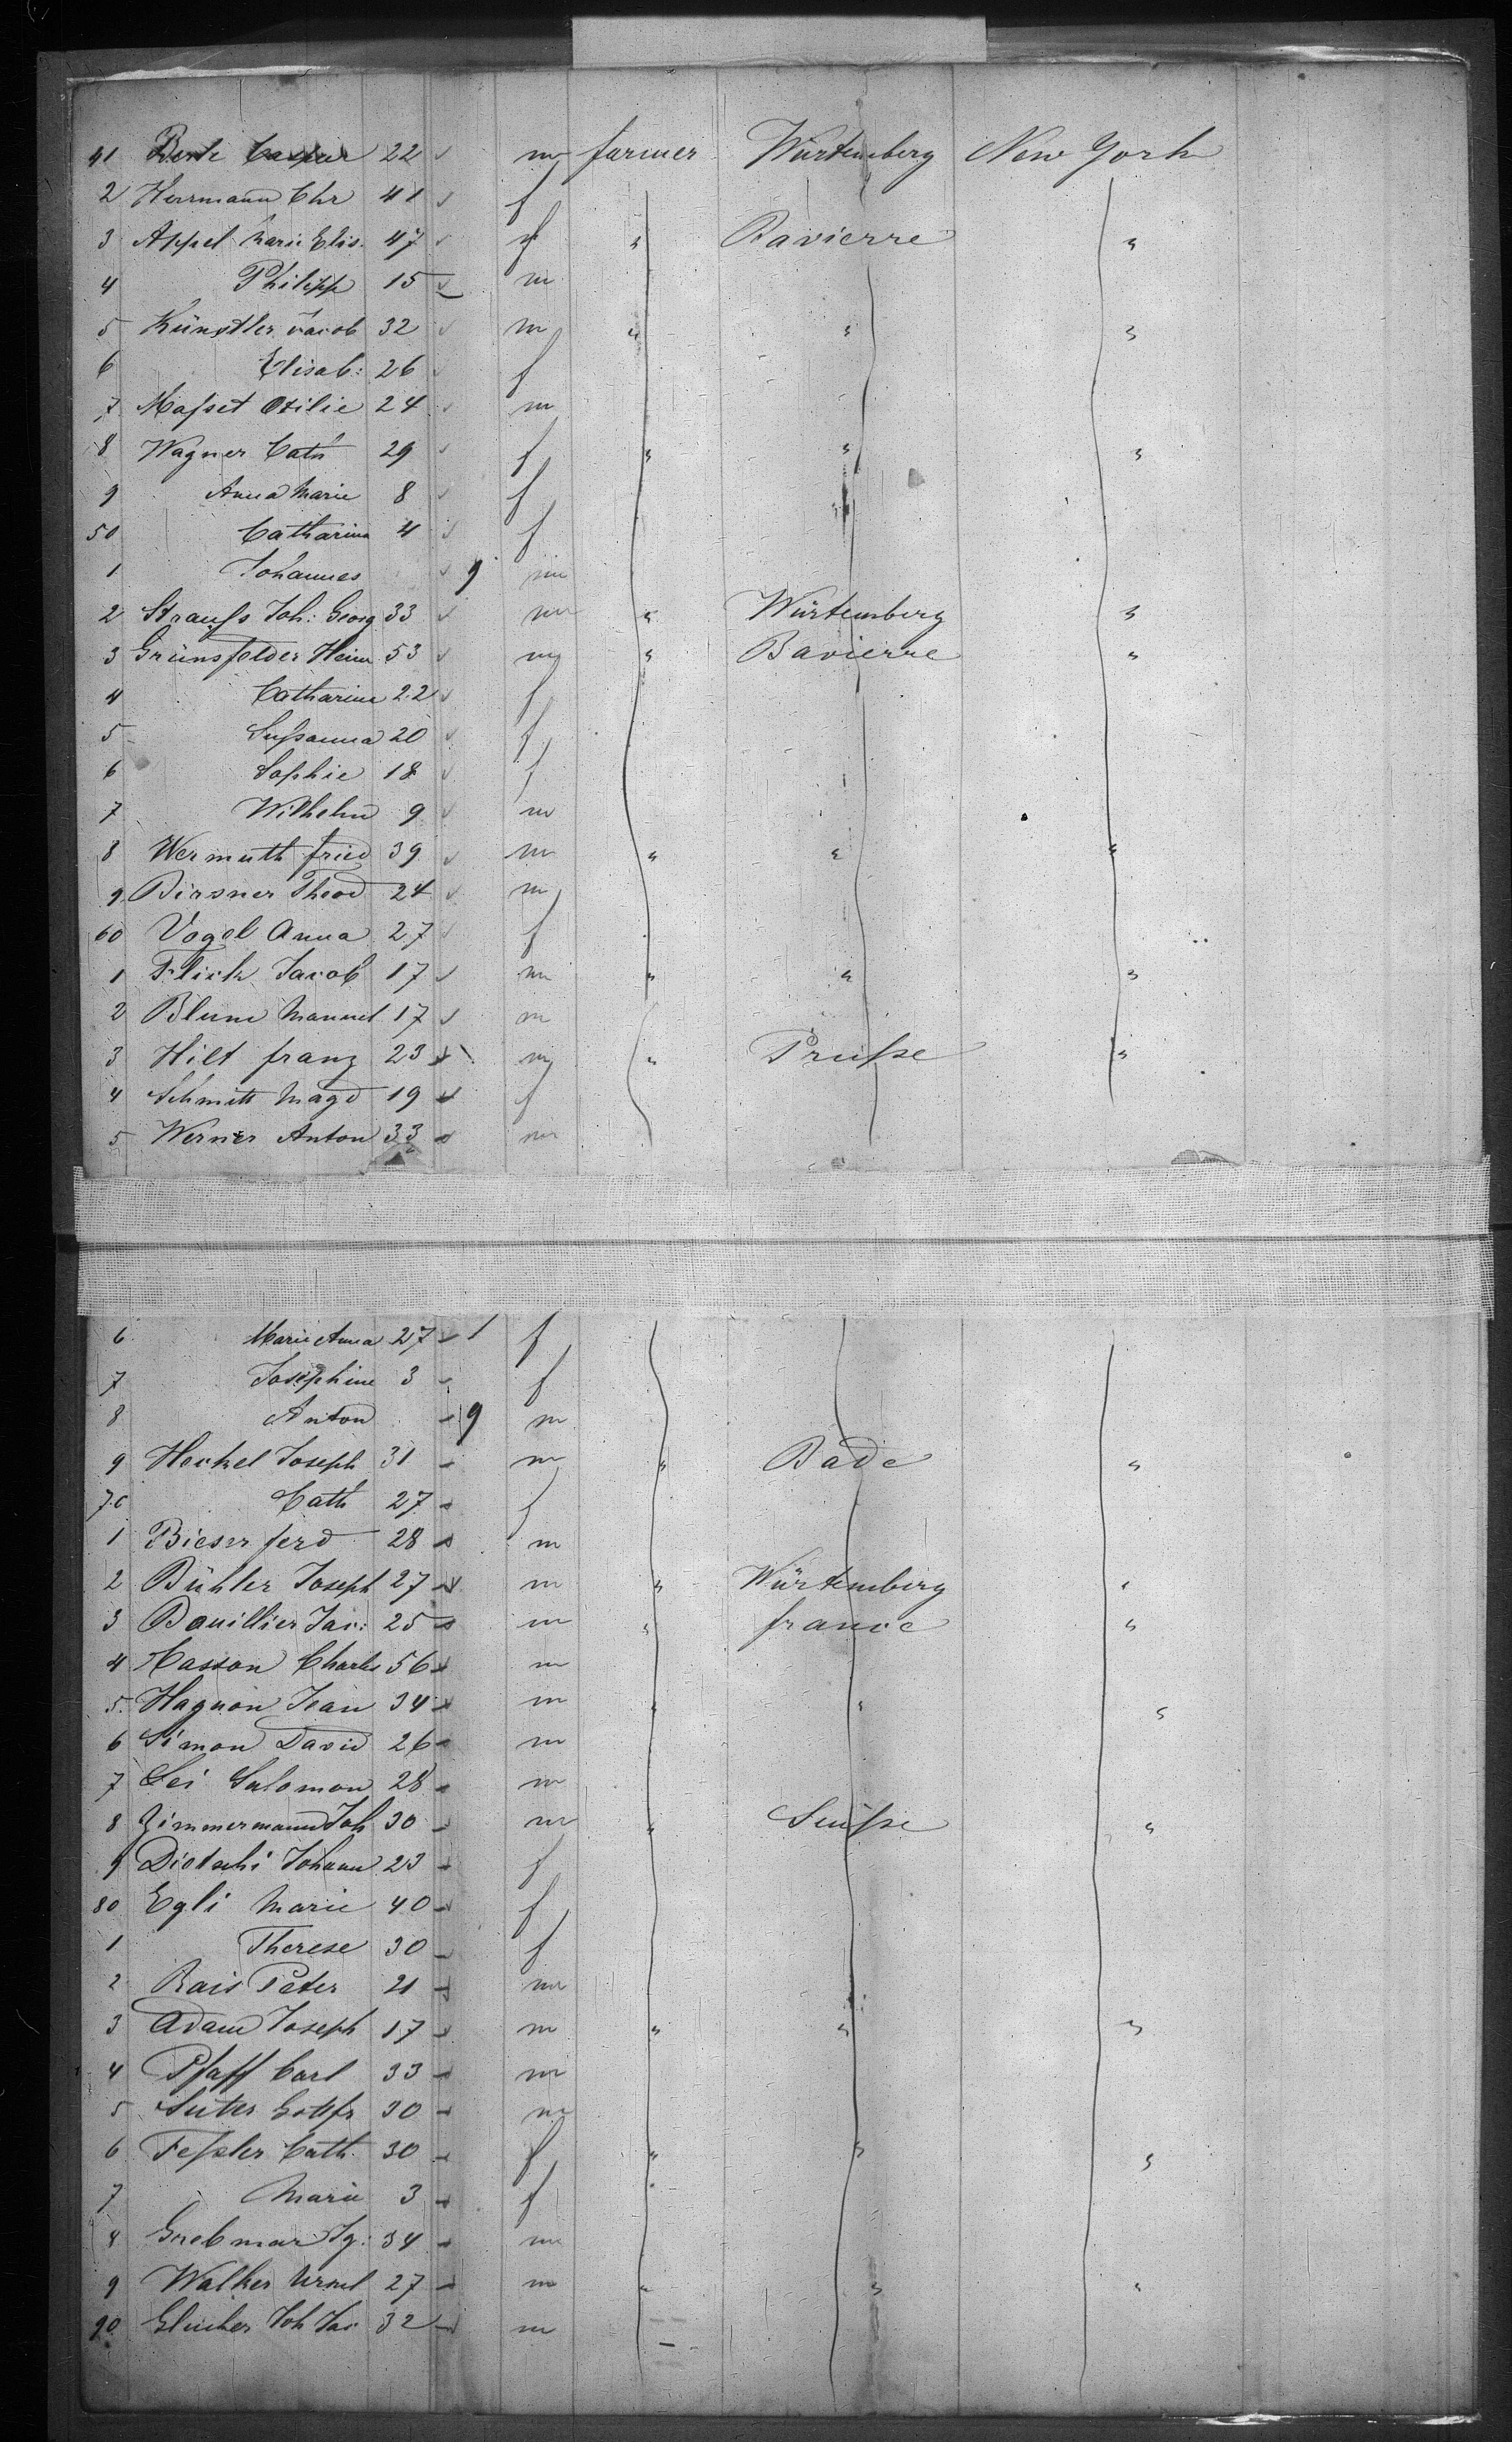 41 Caspar 22 m farmer Würtemberg New York
2 Herrmann Chr 41 f
3 Appel Marie Elis. 47 f " Bavierre "
4 Philipp 15 m
5 Künstler Jacob 32 m " " "
6 Elisab: 26 f
7 Maſset Otilie 24 m
8 Wagner Cath 29 f " " "
9 Anna Marie 8 f
50 Catharina 4 f
1 Johannes 9 m
2 Strauſs Joh: Georg 33 m " Würtemberg "
3 Grünsfelder Heinr 53 m " Bavierre "
4 Catharine 22 f
5 Suſsanna 20 f
6 Sophie 18 f
7 Wilhelm 9 m
8 Wermuth fried 39 m " " "
9 Birsner Theod 24 m
60 Vogel Anna 27 f
1 Flick Jacob 17 m " " "
2 Blum Manuel 17 m
3 Hilt franz 23 m " Pruſse "
4 Schmitt Magd 19 f
5 Werner Anton 33 m
6 Marie Anna 27 1 f
7 Josephine 3 f
8 Anton 9 m
9 Heckel Joseph 31 m " Bade "
70 Cath 27 f
1 Bieser ferd 28 m
2 Bühler Joseph 27 m " Würtemberg "
3 Bouillier Jac: 25 m " france "
4 Casson Charles 56 m
5 Hagnon Jean 34 m " " "
6 Simon David 26 m
7 Salomon 28 m
8 Zimmermann Joh 30 m " Suiſse "
9 Dietschi Johann 23 f
80 Egli Marie 40 f
1 Therese 30 f
2 Rais Peter 21 m
3 Adam Joseph 17 m " " "
4 Pfaff Carl 33 m
5 Suter Gottfr 30 m
6 Feſsler Cath. 30 f " " "
7 Marie 3 f
8 Ig: 34 m
9 Walker 27 m " " "
90 Joh Jac 32 m